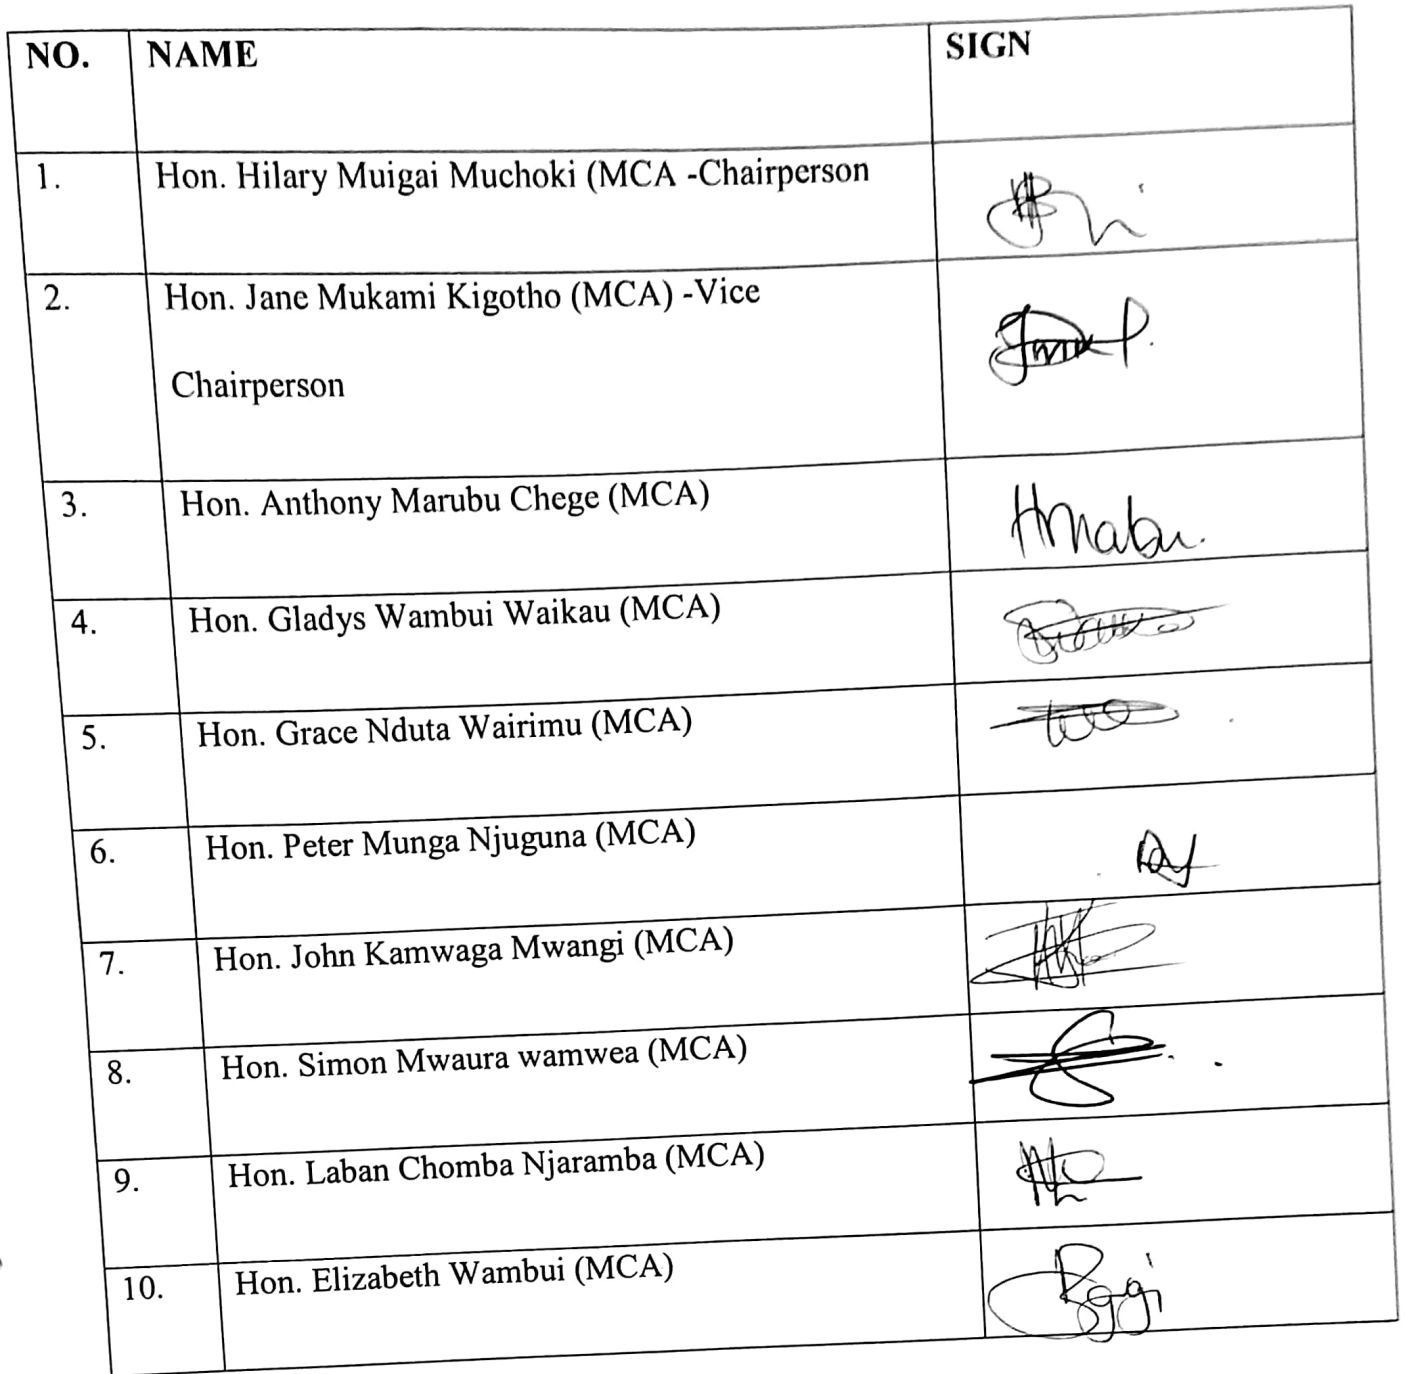 NO. NAME SIGN
1. Hon. Hilary Muigai Muchoki (MCA -Chairperson
2. Hon. Jane Mukami Kigotho (MCA) -Vice
Chairperson
3. Hon. Anthony Marubu Chege (MCA)
4. Hon. Gladys Wambui Waikau (MCA)
5. Hon. Grace Nduta Wairimu (MCA)
6. Hon. Peter Munga Njuguna (MCA)
7. Hon. John Kamwaga Mwangi (MCA)
8. Hon. Simon Mwaura wamwea (MCA)
9. Hon. Laban Chomba Njaramba (MCA)
10. Hon. Elizabeth Wambui (MCA)